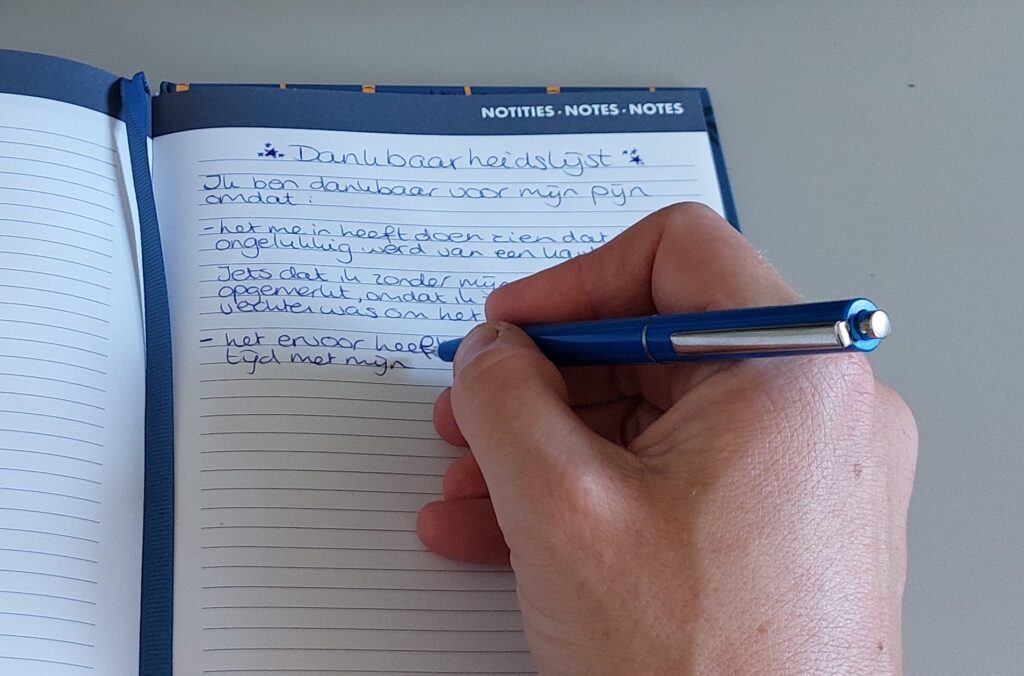 NOTITIES · NOTES · NOTES
Dankbaarheidslijst
Ik ben dankbaar voor mijn pijn
omdat :
- het me in heeft doen zien dat
ongelukkig werd van een
Iets dat ik zonder mijn
opgemerkt, omdat ik
slechter was om het
- het ervoor heeft
tijd met mijn